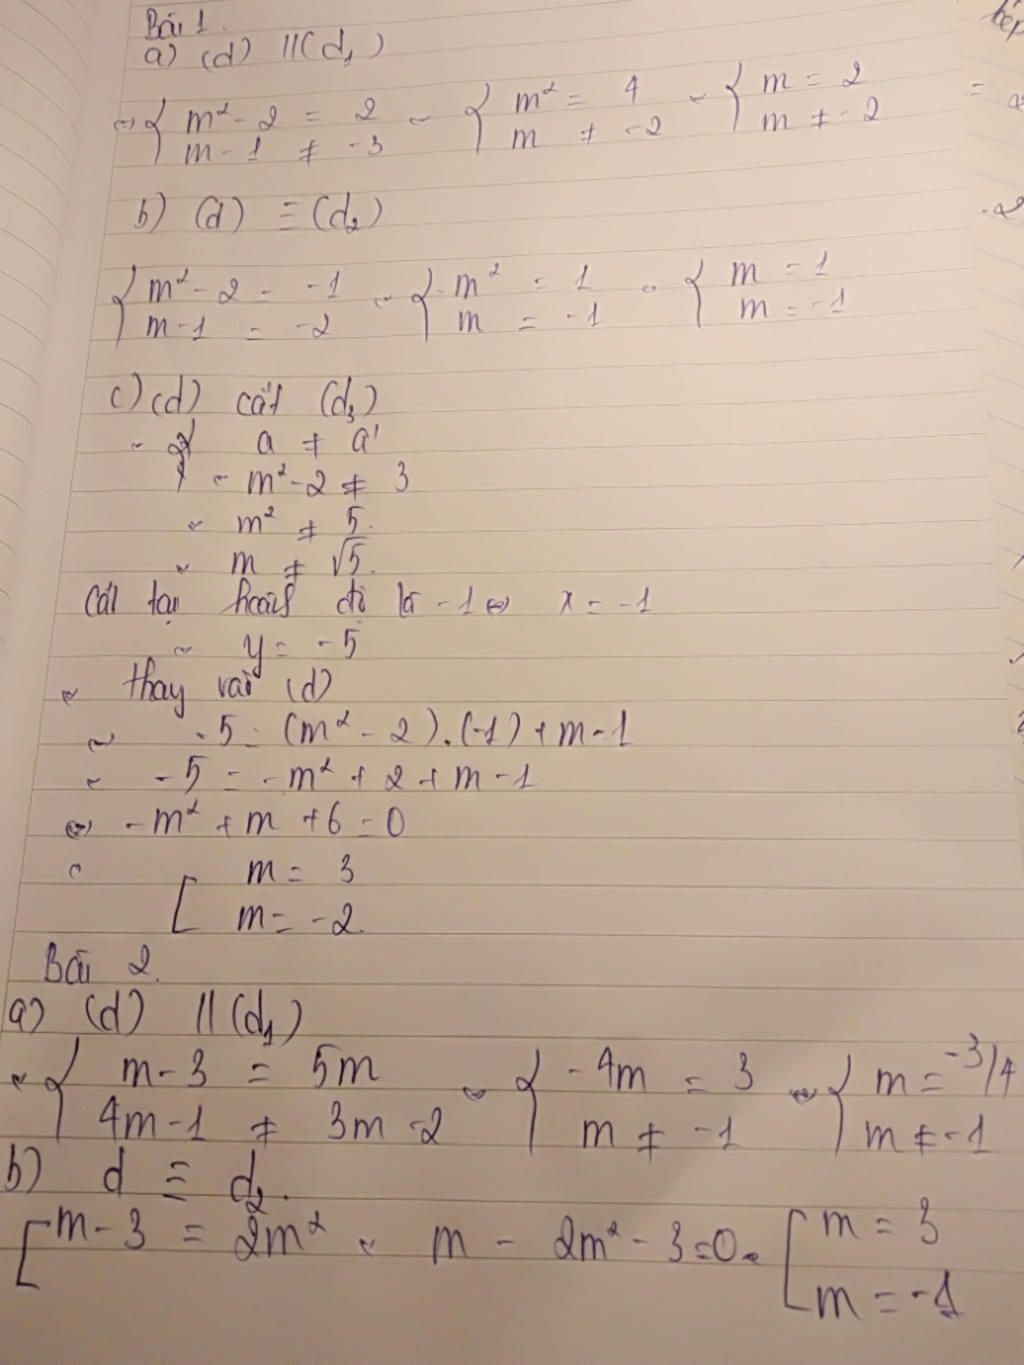 Bài 1.
a) (d) // (d₁)
⇔ { m² - 2 = 2 ~ { m² = 4 ~ { m = 2
m - 1 ≠ -3 m ≠ -2 m ≠ -2
b) (d) ≡ (d₂)
{ m² - 2 = -1 ~ { m² = 1 ~ { m = 1
m - 1 = -2 m = -1 m = -1
c) (d) cắt (d₃)
~ { a ≠ a'
~ m² - 2 ≠ 3
~ m² ≠ 5.
~ m ≠ √5.
Cắt tại hoành độ là -1 ⇔ x = -1
~ y = -5
~ thay vào (d)
~ -5 = (m² - 2).(-1) + m - 1
~ -5 = -m² + 2 + m - 1
⇔ -m² + m + 6 = 0
[ m = 3
m = -2.
Bài 2.
a) (d) // (d₁)
~ { m - 3 = 5m ~ { -4m = 3 ~ { m = -3/4
4m - 1 ≠ 3m - 2 m ≠ -1 m ≠ -1
b) d ≡ d₂.
[ m - 3 = 2m² ~ m - 2m² - 3 = 0 ~ [ m = 3
m = -1